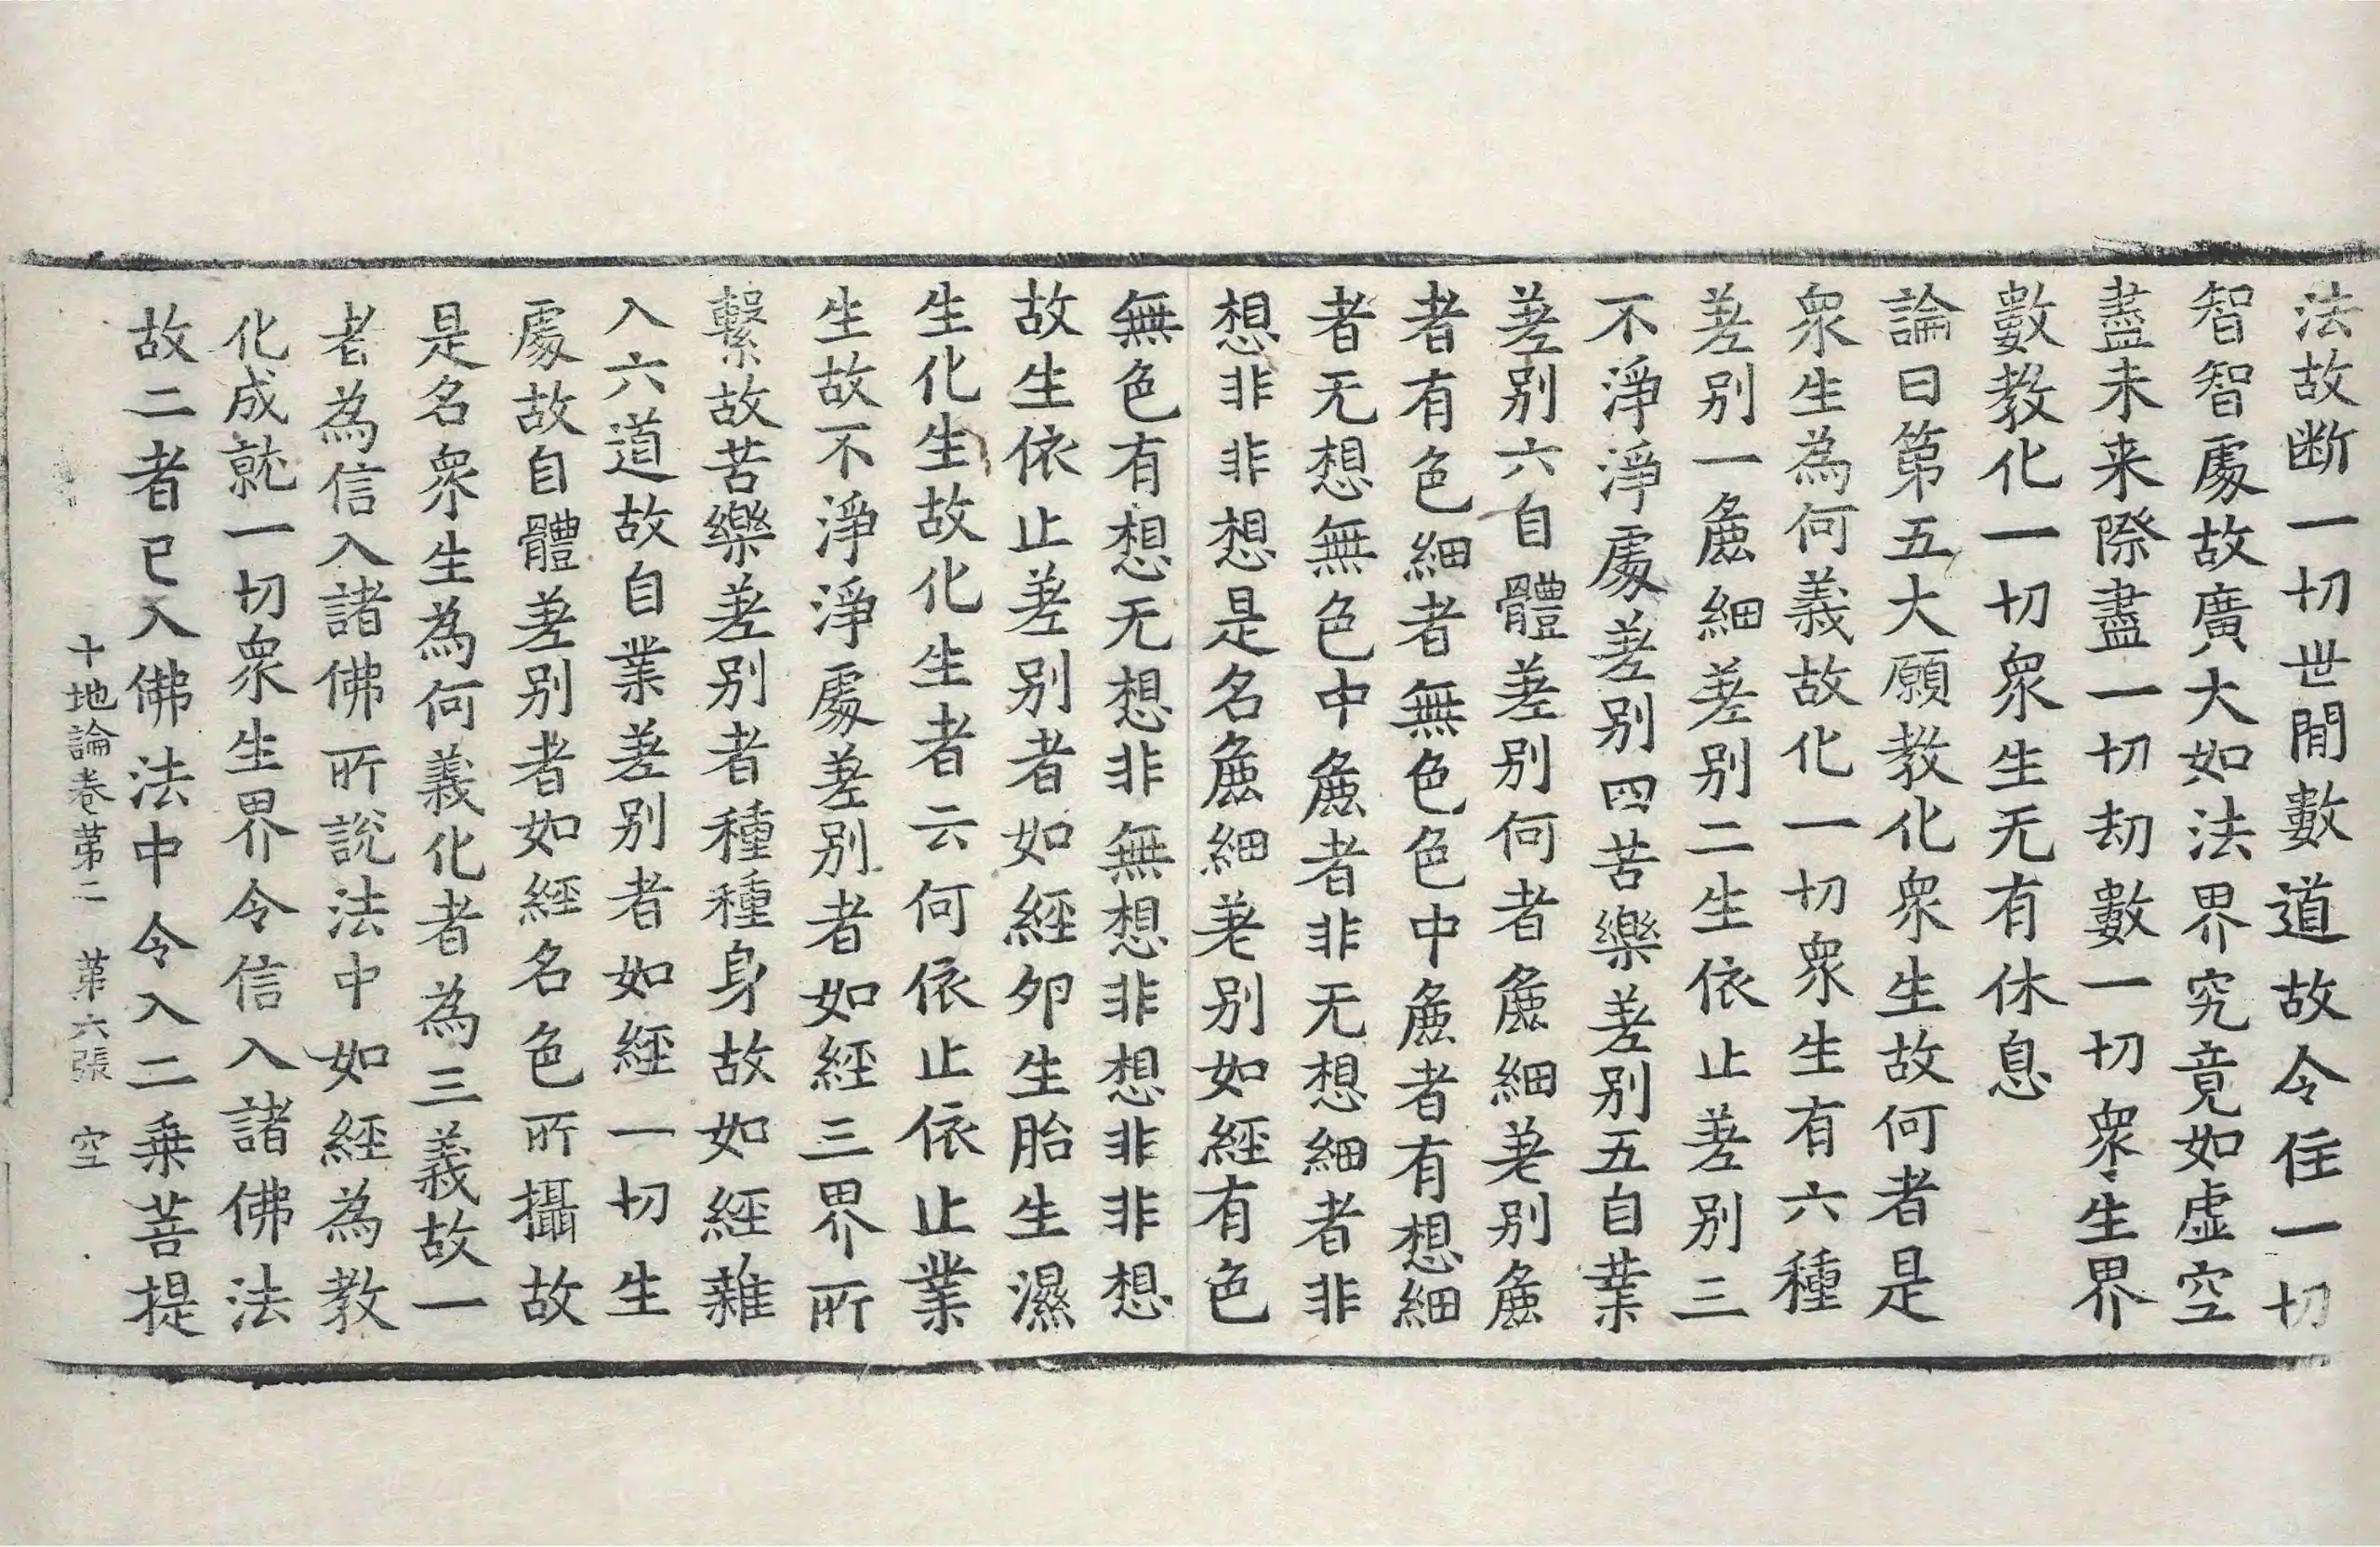 法故断一切世間數道故令住一切
智智處故廣大如法界究竟如虚空
盡未来際盡一切劫數一切衆生界
數教化一切衆生无有休息
論曰第五大願教化衆生故何者是
衆生為何義故化一切衆生有六種
差别一麁細差别二生依止差别三
不淨淨處差别四苦樂差别五自業
差别六自體差别何者麁細差别麁
者有色細者無色色中麁者有想細
者无想無色中麁者非无想細者非
想非非想是名麁細差别如經有色
無色有想无想非無想非想非非想
故生依止差别者如經卵生胎生濕
生化生故化生者云何依止依止業
生故不淨淨處差别者如經三界所
繫故苦樂差别者種種身故如經雜
入六道故自業差别者如經一切生
處故自體差别者如經名色所攝故
是名衆生為何義化者為三義故一
者為信入諸佛所說法中如經為教
化成就一切衆生界令信入諸佛法
故二者已入佛法中令入二乗菩提
十地論卷第二　第六張　空